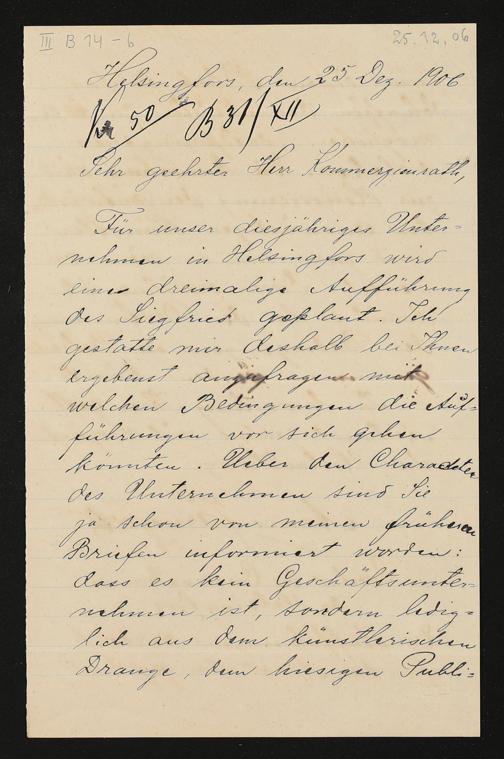 III B 14-6 25.12.06
Helsingfors, den 25 Dez. 1906
50 B 31/XII
Sehr geehrter Herr Kommerzienrath,
Für unser diesjähriges Unter-
nehmen in Helsingfors wird
eine dreimalige Aufführung
des Siegfried geplant. Ich
gestatte mir deshalb bei Ihnen
ergebenst anzufragen mit
welchen Bedingungen die Auf-
führungen vor sich gehen
könnten. Ueber den Charackter
des Unternehmen sind Sie
ja schon von meinen früheren
Briefen informiert worden:
dass es kein Geschäftsunter-
nehmen ist, sondern ledig-
lich aus dem künstlerischen
Drange, dem hiesigen Publi-